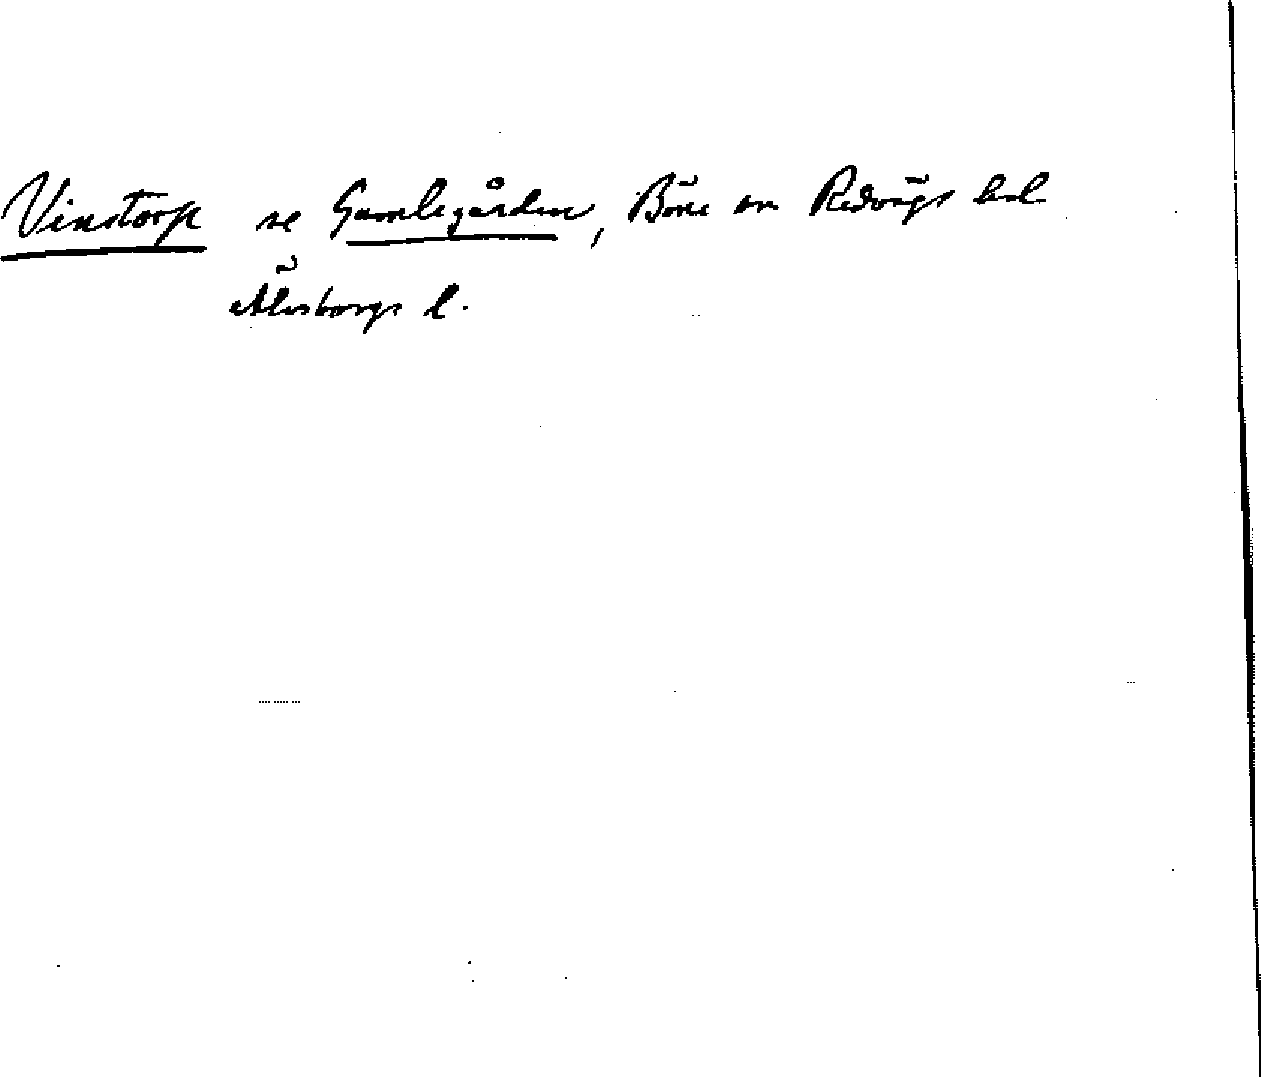 Vinstorp se Gamlegården, Böne sn Redvägs hd
Älvsborgs l.